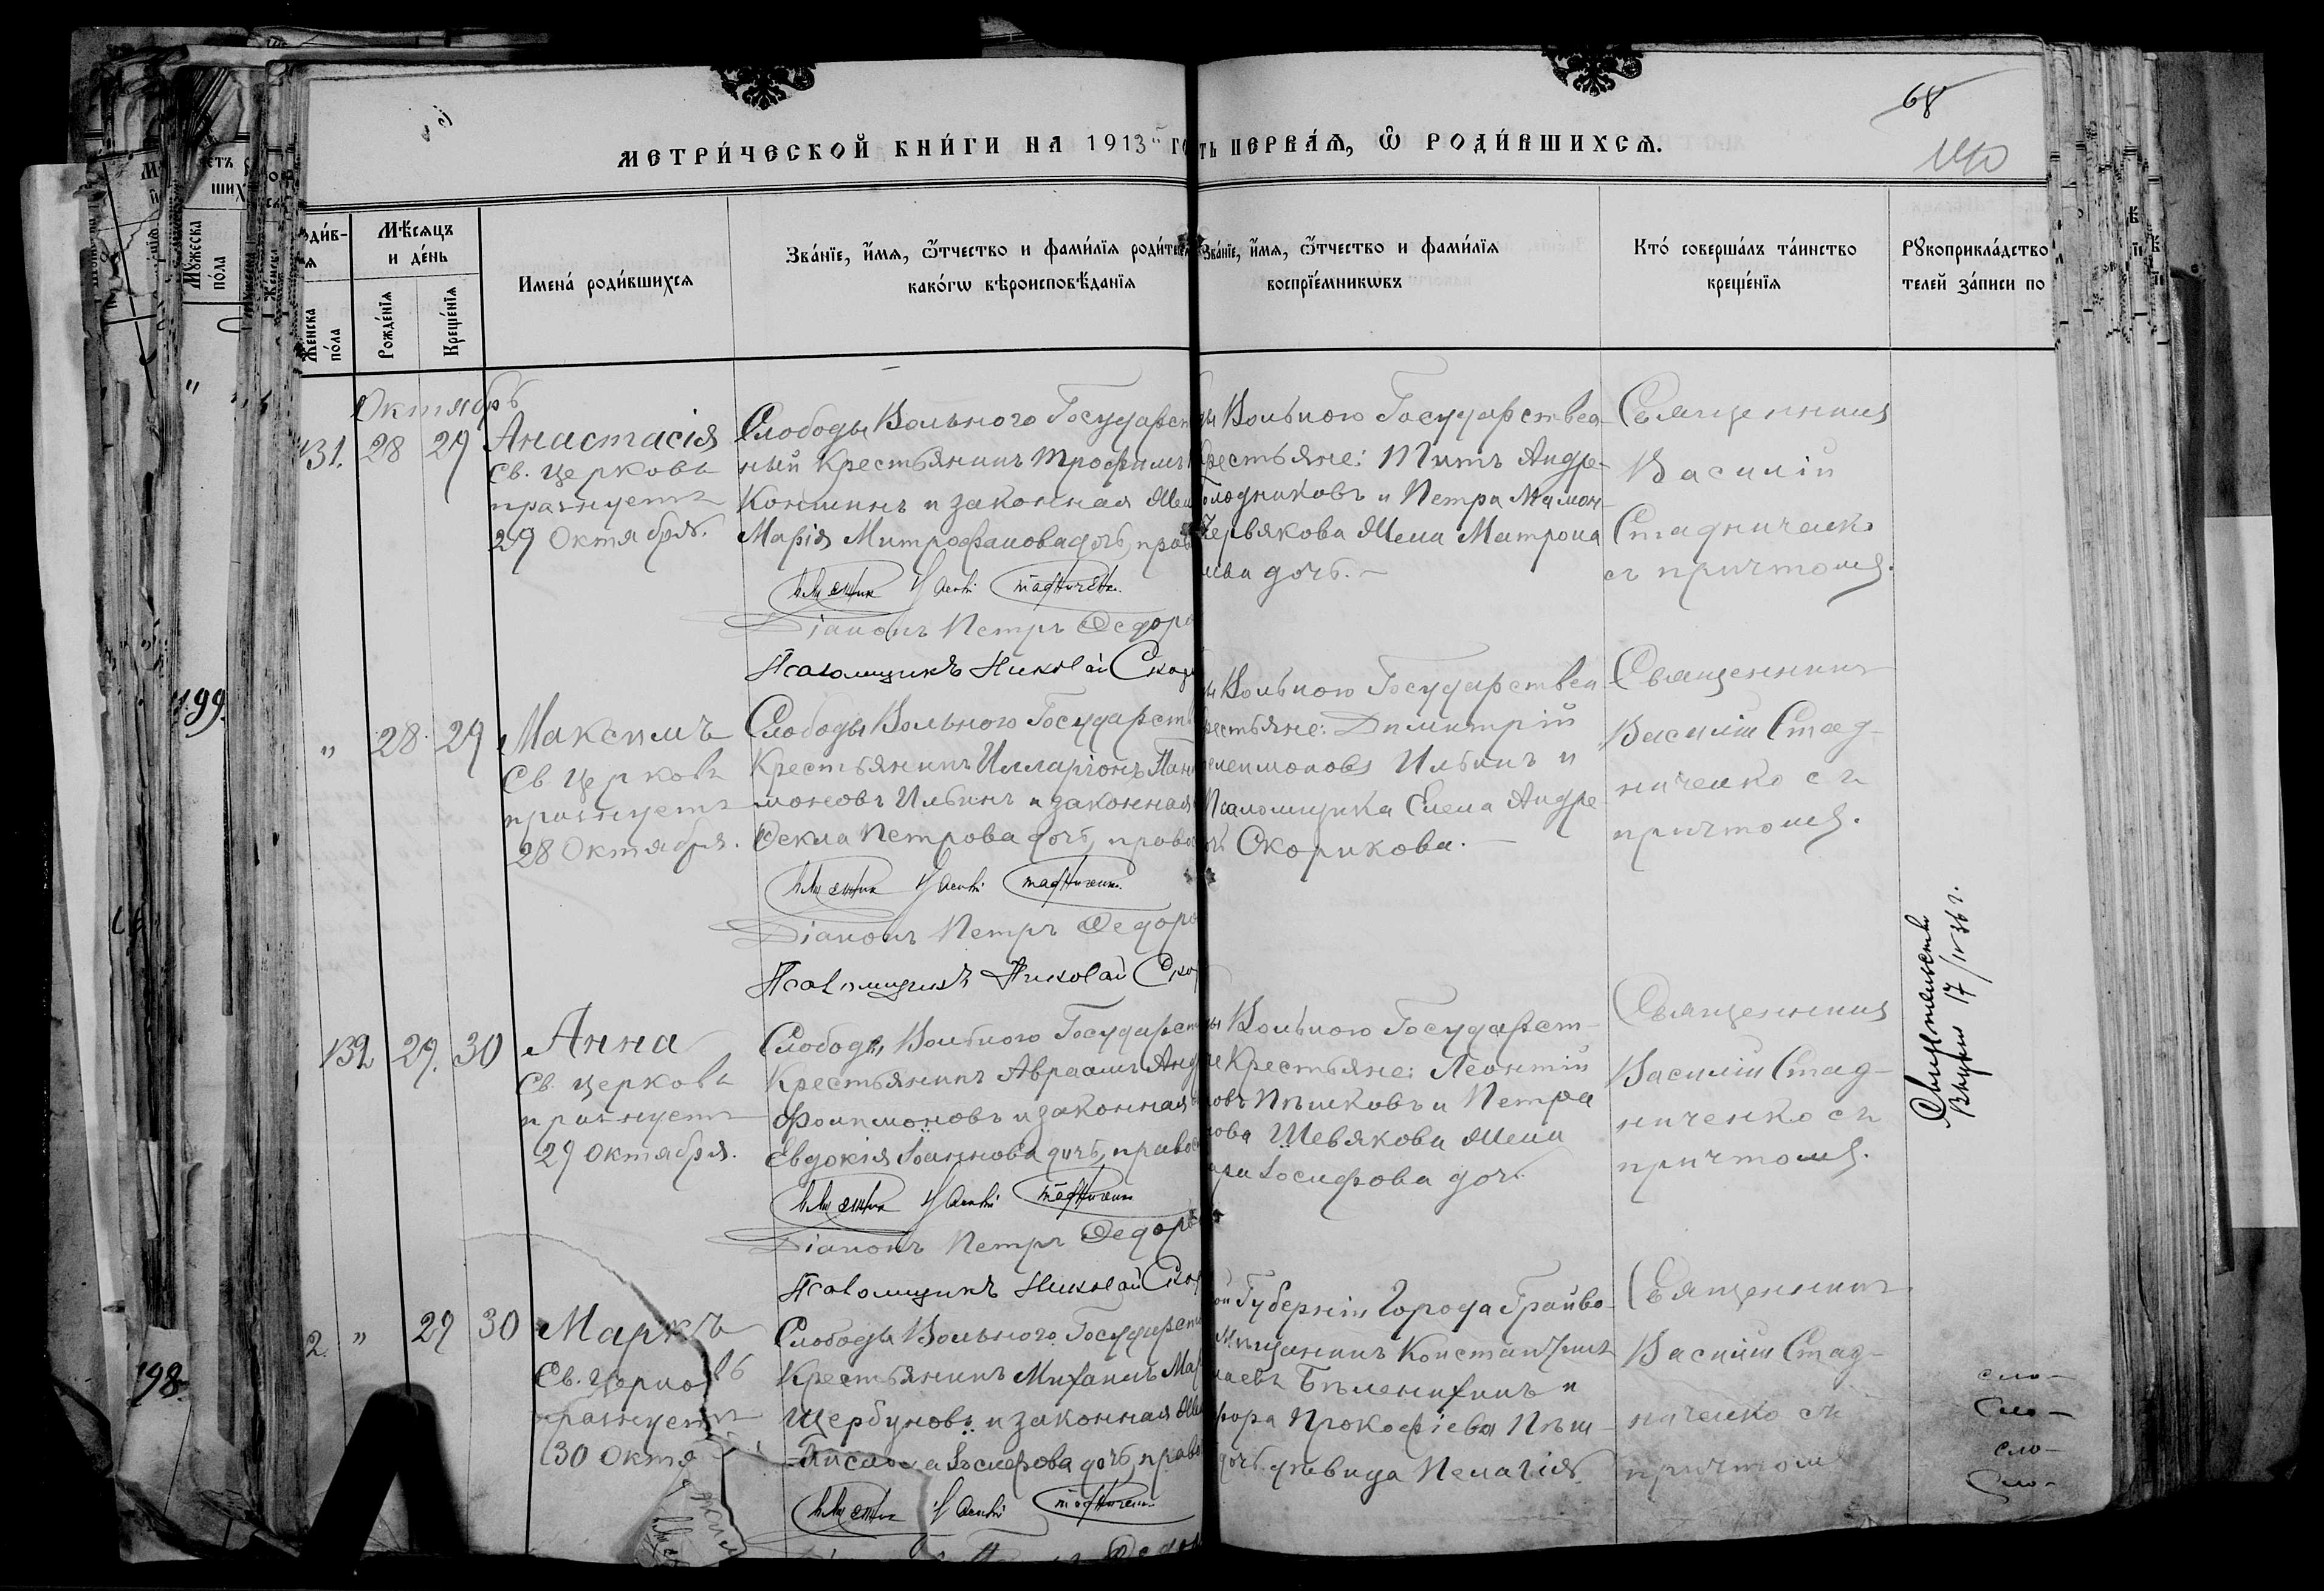 68
метри́ческой кни́ги на 1913 го
ть перва́ѧ, ѽ роди́вшихсѧ.
Же́нска по́ла
Мѣ́сѧцъ и де́нь
Рожде́нїѧ
Креще́нїѧ
Имена́ роди́вшихсѧ
Зва́нїе, и́мѧ, ѻ́тчество и фами́лїѧ роди́те
како́гѡ вѣроисповѣ́данїѧ
Зва́нїе, и́мѧ, ѻ́тчество и фами́лїѧ
воспрїе́мникѡвъ
Кто́ соверша́лъ та́инство
креще́нїѧ
Рꙋкоприкла́дство
телей за́писи по
Октябрь
131. 28 29 Анастасія
Св. Церковь
празнуетъ
29 Октября.
Слободы Вольного Государст
ный Крестьянинъ Трофимъ
Коншинъ и законная Же
Марія Митрофанова дочь, прав
Діаконъ Петръ Федоро
Псаломщикъ Николай Скор
ы Вольного Государствен
рестьяне: Титъ Андре-
олодниковъ и Петра Мамон-
Червякова Жена Матрона
ева дочь.
Священникъ
Василій
Стадниченко
съ причтомъ.
199.
" 28 29 Максимъ
Св Церковь
празнуетъ
28 Октября.
Слободы Вольного Государст
Крестьянинъ Илларіонъ Пан
моновъ Ильинъ и законная
Ѳекла Петрова дочь, право
Діаконъ Петръ Федоро
Псаломщикъ Николай Ско
ы Вольного Государствен
рестьяне: Димитрій
елеимоновъ Ильинъ и
Псаломщика Елена Андре
Скорикова.
Священникъ
Василій Стад-
ниченко съ
причтомъ.
132 29. 30 Анна
Св. Церковь
празнуетъ
29 Октября.
Слободы Вольного Государст
Крестьянинъ Авраамъ Анд
Филимоновъ и законная
Евдокія Іоаннова дочь, право
Діаконъ Петръ Федоро
Псаломщикъ Николай Скор
ы Вольного Государст-
е Крестьяне: Леонтій
овъ Пѣшковъ и Петра
нова Шевякова Жена
Іосифова доч.
Священникъ
Василій Стад-
ниченко съ
причтомъ.
17/IV 36 г.
198.
" 29 30 Маркъ
Св. Церковь
празнуетъ
30 Октя
Слободы Вольного Государст
Крестьянинъ Михаилъ Мар
Щербуновъ и законная Же
Іосифова дочь, право
ой Губерніи Города Грайво-
Мѣщанинъ Константинъ
лаевъ Бѣленихинъ и
ора Прокофіева Пѣш-
дочь дѣвица Пелагія.
Священникъ
Василій Стад-
ниченко съ
причтомъ
сло-
Сло-
сло-
Сло-